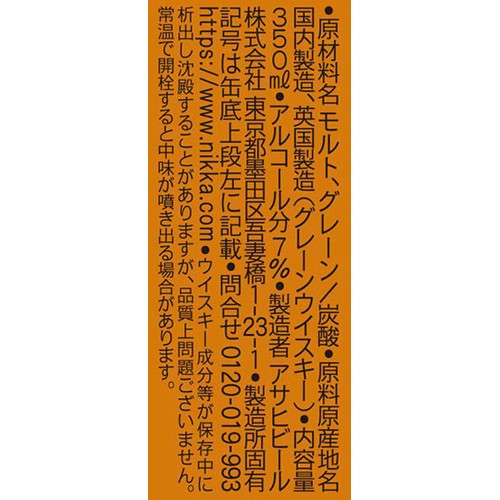 •原材料名 モルト、グレーン/炭酸•原料原産地名
国内製造、英国製造(グレーンウイスキー)•内容量
350㎖•アルコール分7%•製造者 アサヒビール
株式会社 東京都墨田区吾妻橋1-23-1•製造所固有
記号は缶底上段左に記載•問合せ 0120-019-993
https://www.nikka.com•ウイスキー成分等が保存中に
析出し沈殿することがありますが、品質上問題ございません。
常温で開栓すると中味が噴き出る場合があります。